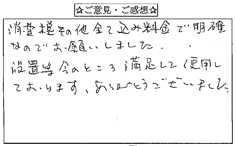 ☆ご意見・ご感想☆
消費税その他全て込み料金で明確
なのでお願いしました。
設置等今のところ満足して使用し
ております。ありがとうございました